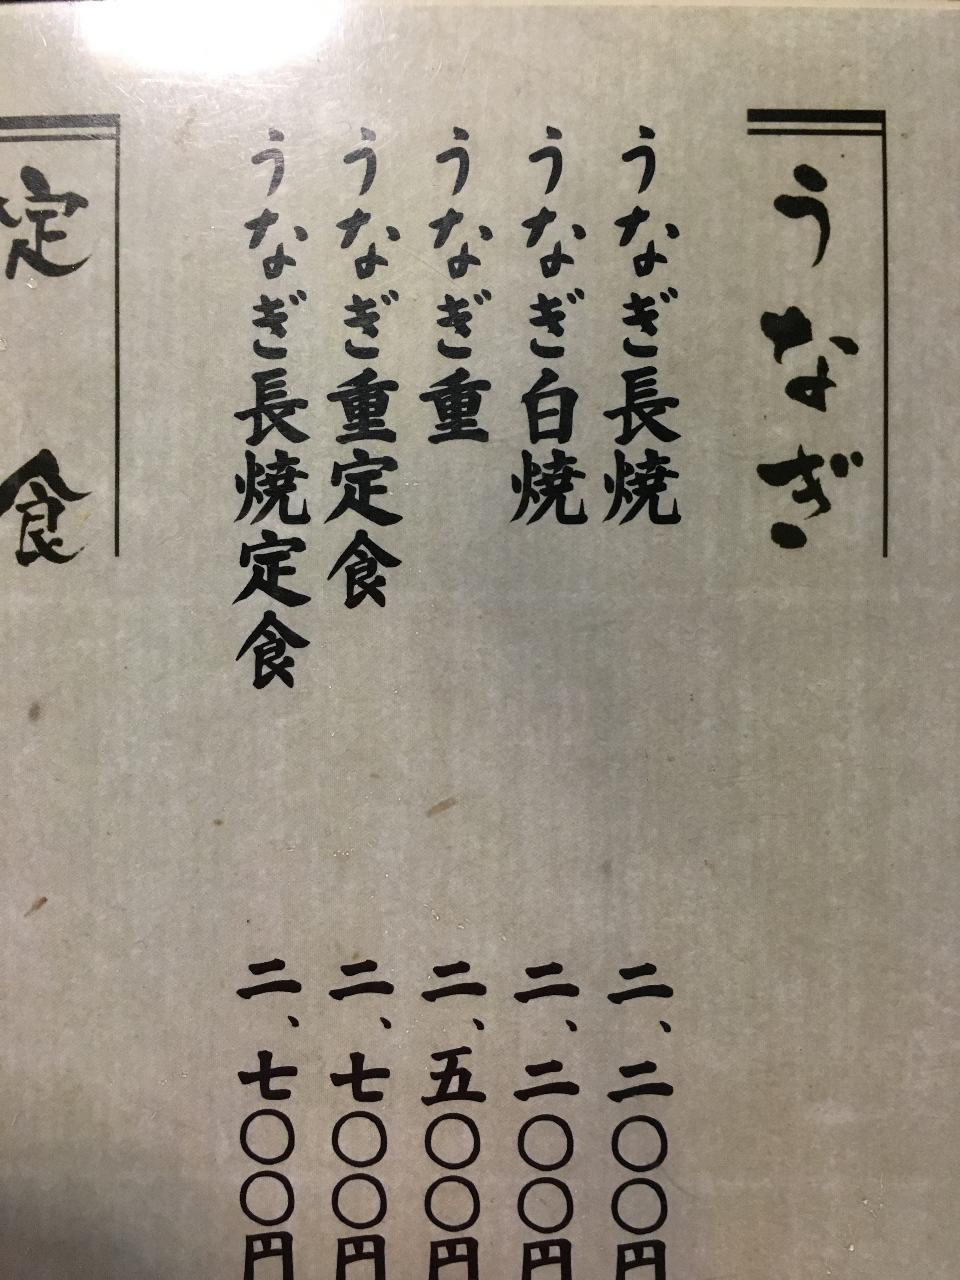 うなぎ
うなぎ長焼 二、二〇〇円
うなぎ白焼 二、二〇〇円
うなぎ重 二、五〇〇円
うなぎ重定食 二、七〇〇円
うなぎ長焼定食 二、七〇〇円
定食